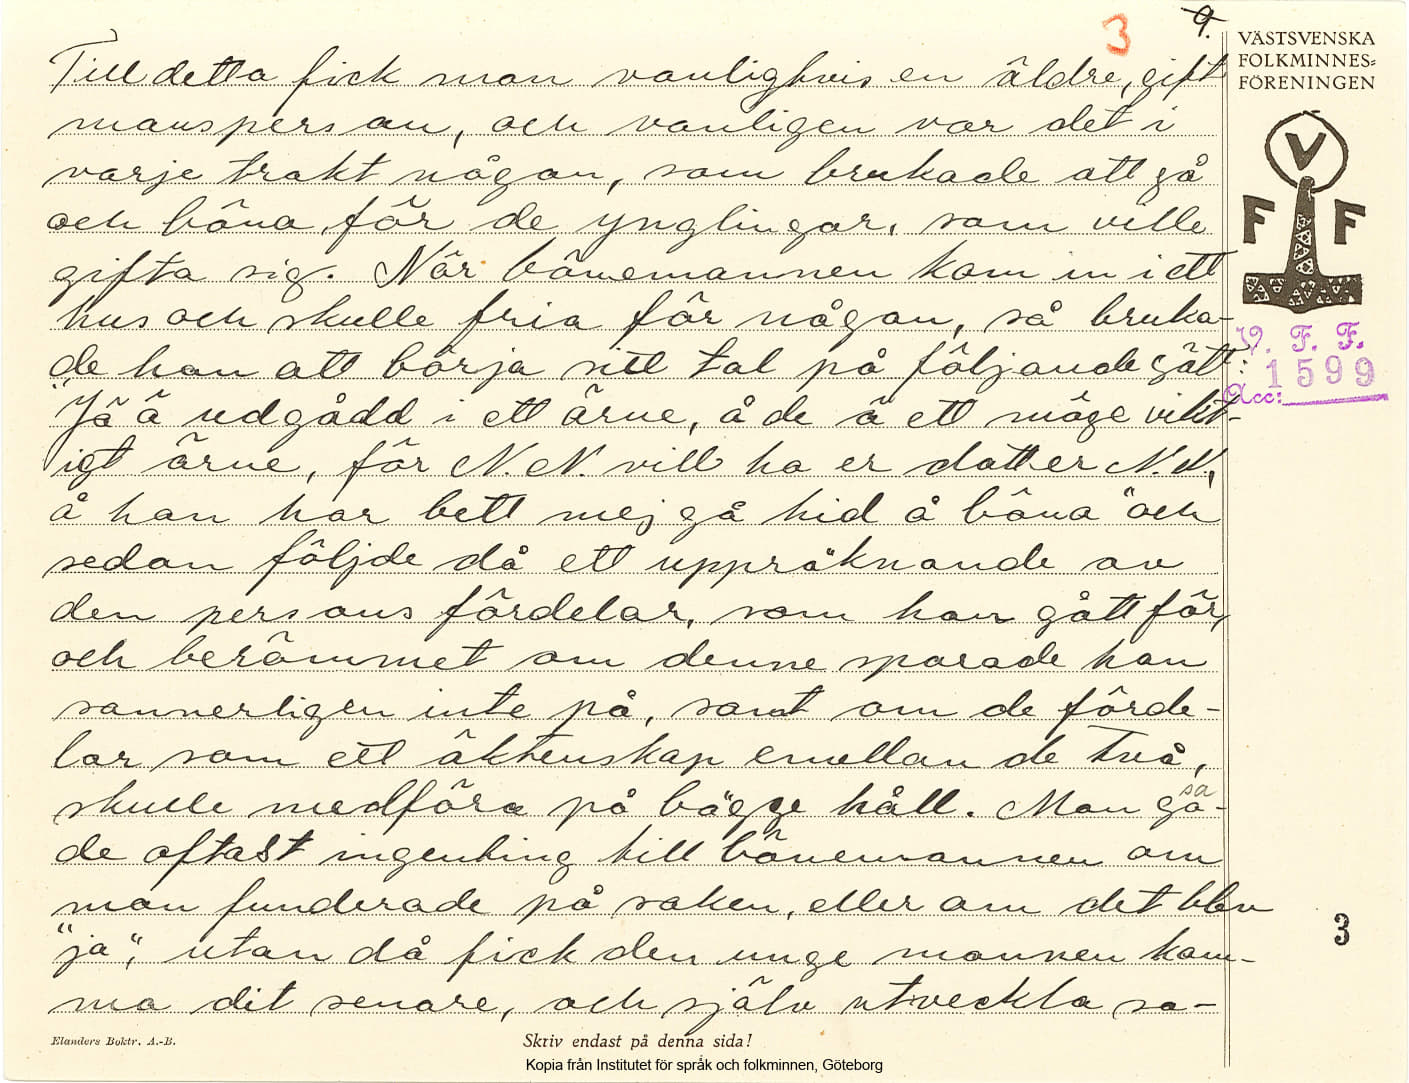 3 9.
VÄSTSVENSKA
FOLKMINNES=
FÖRENINGEN
V
F F
V. F. F.
1599
Acc:
Till detta fick man vanligtvis en äldre, gift
mansperson, och vanligen var det i
varje trakt någon, som brukade att gå
och böna för de ynglingar, som ville
gifta sig. När bönemannen kom in i ett
hus och skulle fria för någon, så bruka-
de han att börja sitt tal på följande sätt:
"Jä ä udgådd i ett ärne, å de ä ett möge vikt-
igt ärne, för N.N. vill ha er datter N.N.,
å han har bett mej gå hid å böna" och
sedan följde då ett uppräknande av
den persons fördelar, som han gått för,
och berömmet om denne sparade han
sannerligen inte på, samt om de förde-
lar som ett äktenskap emellan de två,
skulle medföra på bägge håll. Man sa-
de oftast ingenting till bönemannen om
man funderade på saken, eller om det blev
"ja", utan då fick den unge mannen kom-
ma dit senare, och själv utveckla sa-
3
Elanders Boktr. A.-B.
Skriv endast på denna sida!
Kopia från Institutet för språk och folkminnen, Göteborg